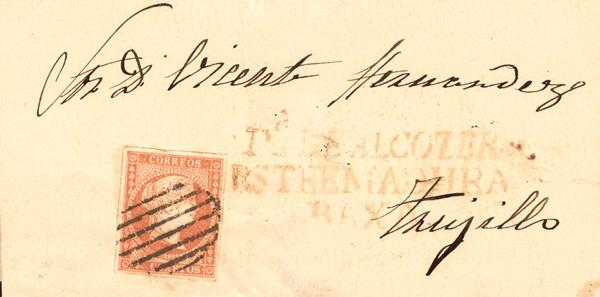 Sor Dn Vicente Hernandez
CORREOS
ALCOZER
ESTREMADURA
BAXA
Trujillo
CUARTOS